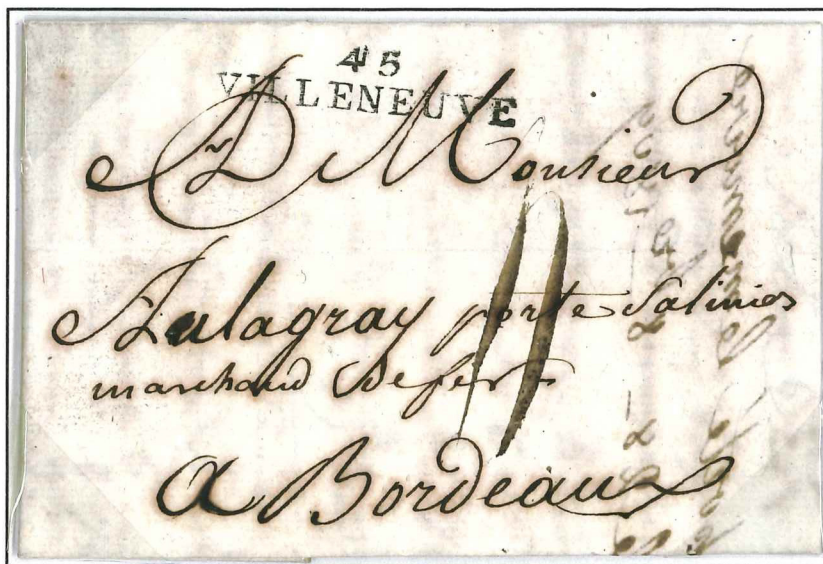 45
VILLENEUVE
A Monsieur
Aulagray porte Salinies
marchand De fer
a Bordeaux